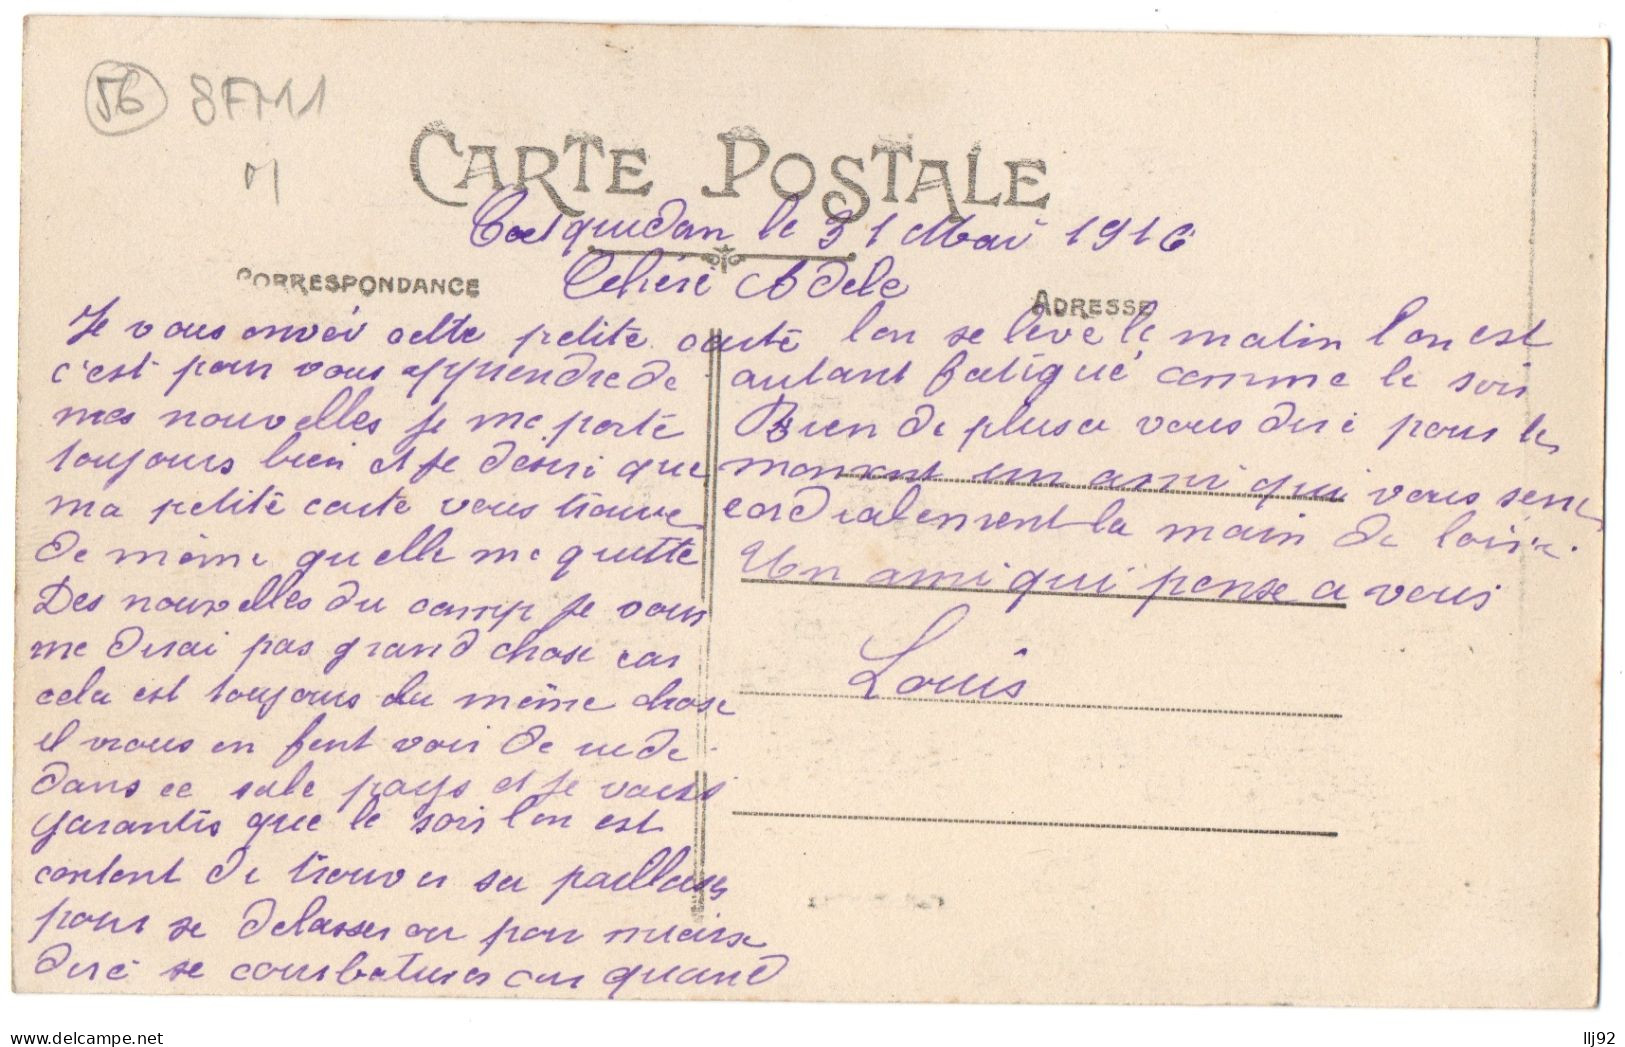 56 SFM11
M
CARTE POSTALE
Coetquidan le 31 Mai 1916
CORRESPONDANCE
Cehère Adèle
ADRESSE
Je vous envéi cette petité carté
c'est pour vous apprendre de
mes nouvelles Je me porté
toujours bien et Je désiré que
ma petité carté vous trouve
de même qu elle me quitte
Des nouvelles du camp Je vous
me dirai pas grand chose car
cela est toujours du même chose
il nous en font voir de rude
dans ce sale pays et Je vous
garantis que le soir lon est
content de trouver sa paillasse
pour se délasser ou pour mieux
diré se courbaturer car quand
lon se lève le matin lon est
autant fatigué comme le soir
Rien de plus a vous diré pour le
moment un ami qui vous serre
cordialement la main de loin
Un ami qui pense a vous
Louis
llj92
delcampe.net